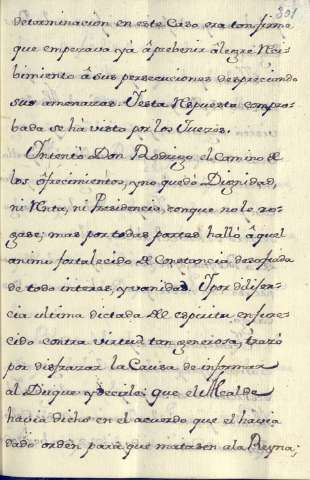 301
determinacion en este Caso era tan firme
que emperava yà à prebenir alegre Rec-
bimiento à sus persecuciones despreciando
sus amenazas. Y esta Respuesta compro-
bada se há visto por los Juezes.
Yntentó Don Rodrigo el Camino de
los ofrecimientos, y no quedó Dignidad,
ni Renta, ni Presidencia, con que no le ro-
gase; mas por todas partes halló àquel
animo fortalecido de Constancia desasiada
de todo interes, y vanidad. Y por dilixen-
cia ultima dictada de espiritu enfure-
cido contra virtud tan generosa, trazó
por disfrazar la Causa de informar
al Duque, y decirle: que el Alcalde
havia dicho en el acuerdo que el havia
dado orden para que matasen a la Reyna;